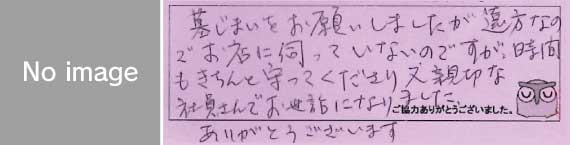 No image
墓じまいをお願いしましたが遠方なの
でお店に伺っていないのですが、時間
もきちんと守ってくださり又親切な
社員さんでお世話になりました。
ご協力ありがとうございました。
ありがとうございます